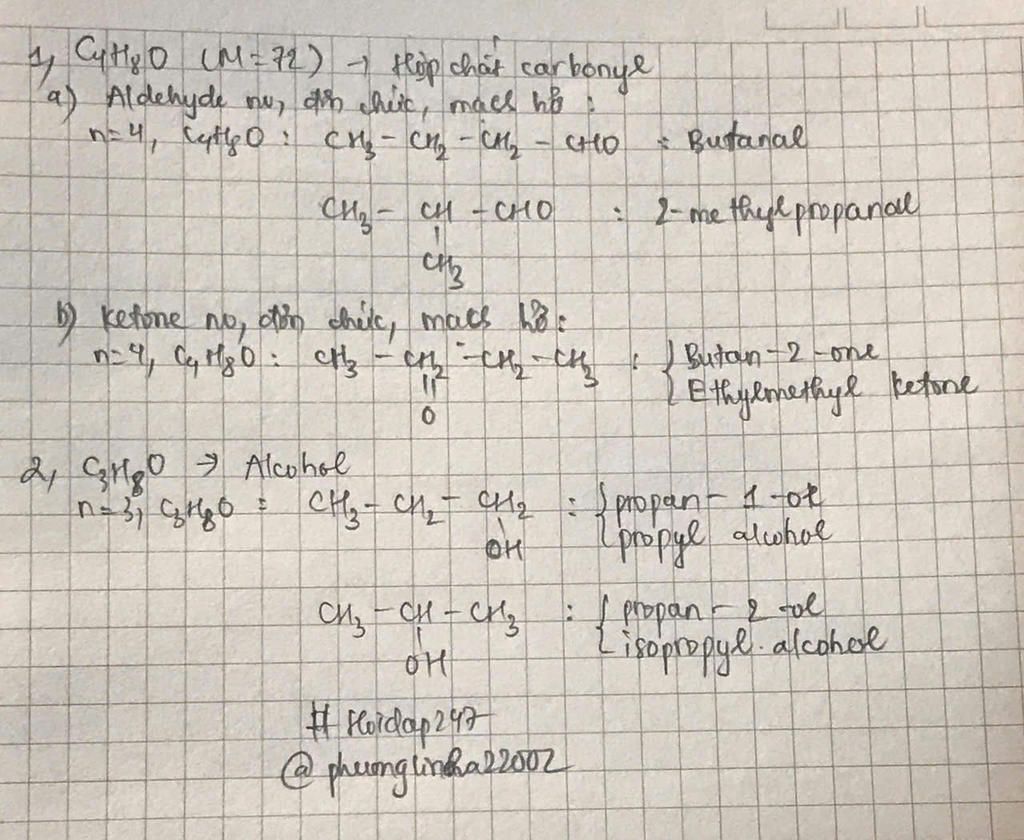 1, C4H8O (M=72) → Hợp chất carbonyl
a) Aldehyde no, đơn chức, mạch hở :
n=4, C4H8O : CH3 - CH2 - CH2 - CHO : Butanal
CH3 - CH - CHO : 2-methylpropanal
CH3
b) ketone no, đơn chức, mạch hở :
n=4, C4H8O : CH3 - CH2 - CH2 - CH3 : { Butan-2-one
O { Ethylmethyl ketone
2, C3H8O → Alcohol
n=3, C3H8O : CH3 - CH2 - CH2 : { propan-1-ol
OH { propyl alcohol
CH3 - CH - CH3 : { propan-2-ol
OH { isopropyl alcohol
# Hoidap247
@ phuonglinhha22002